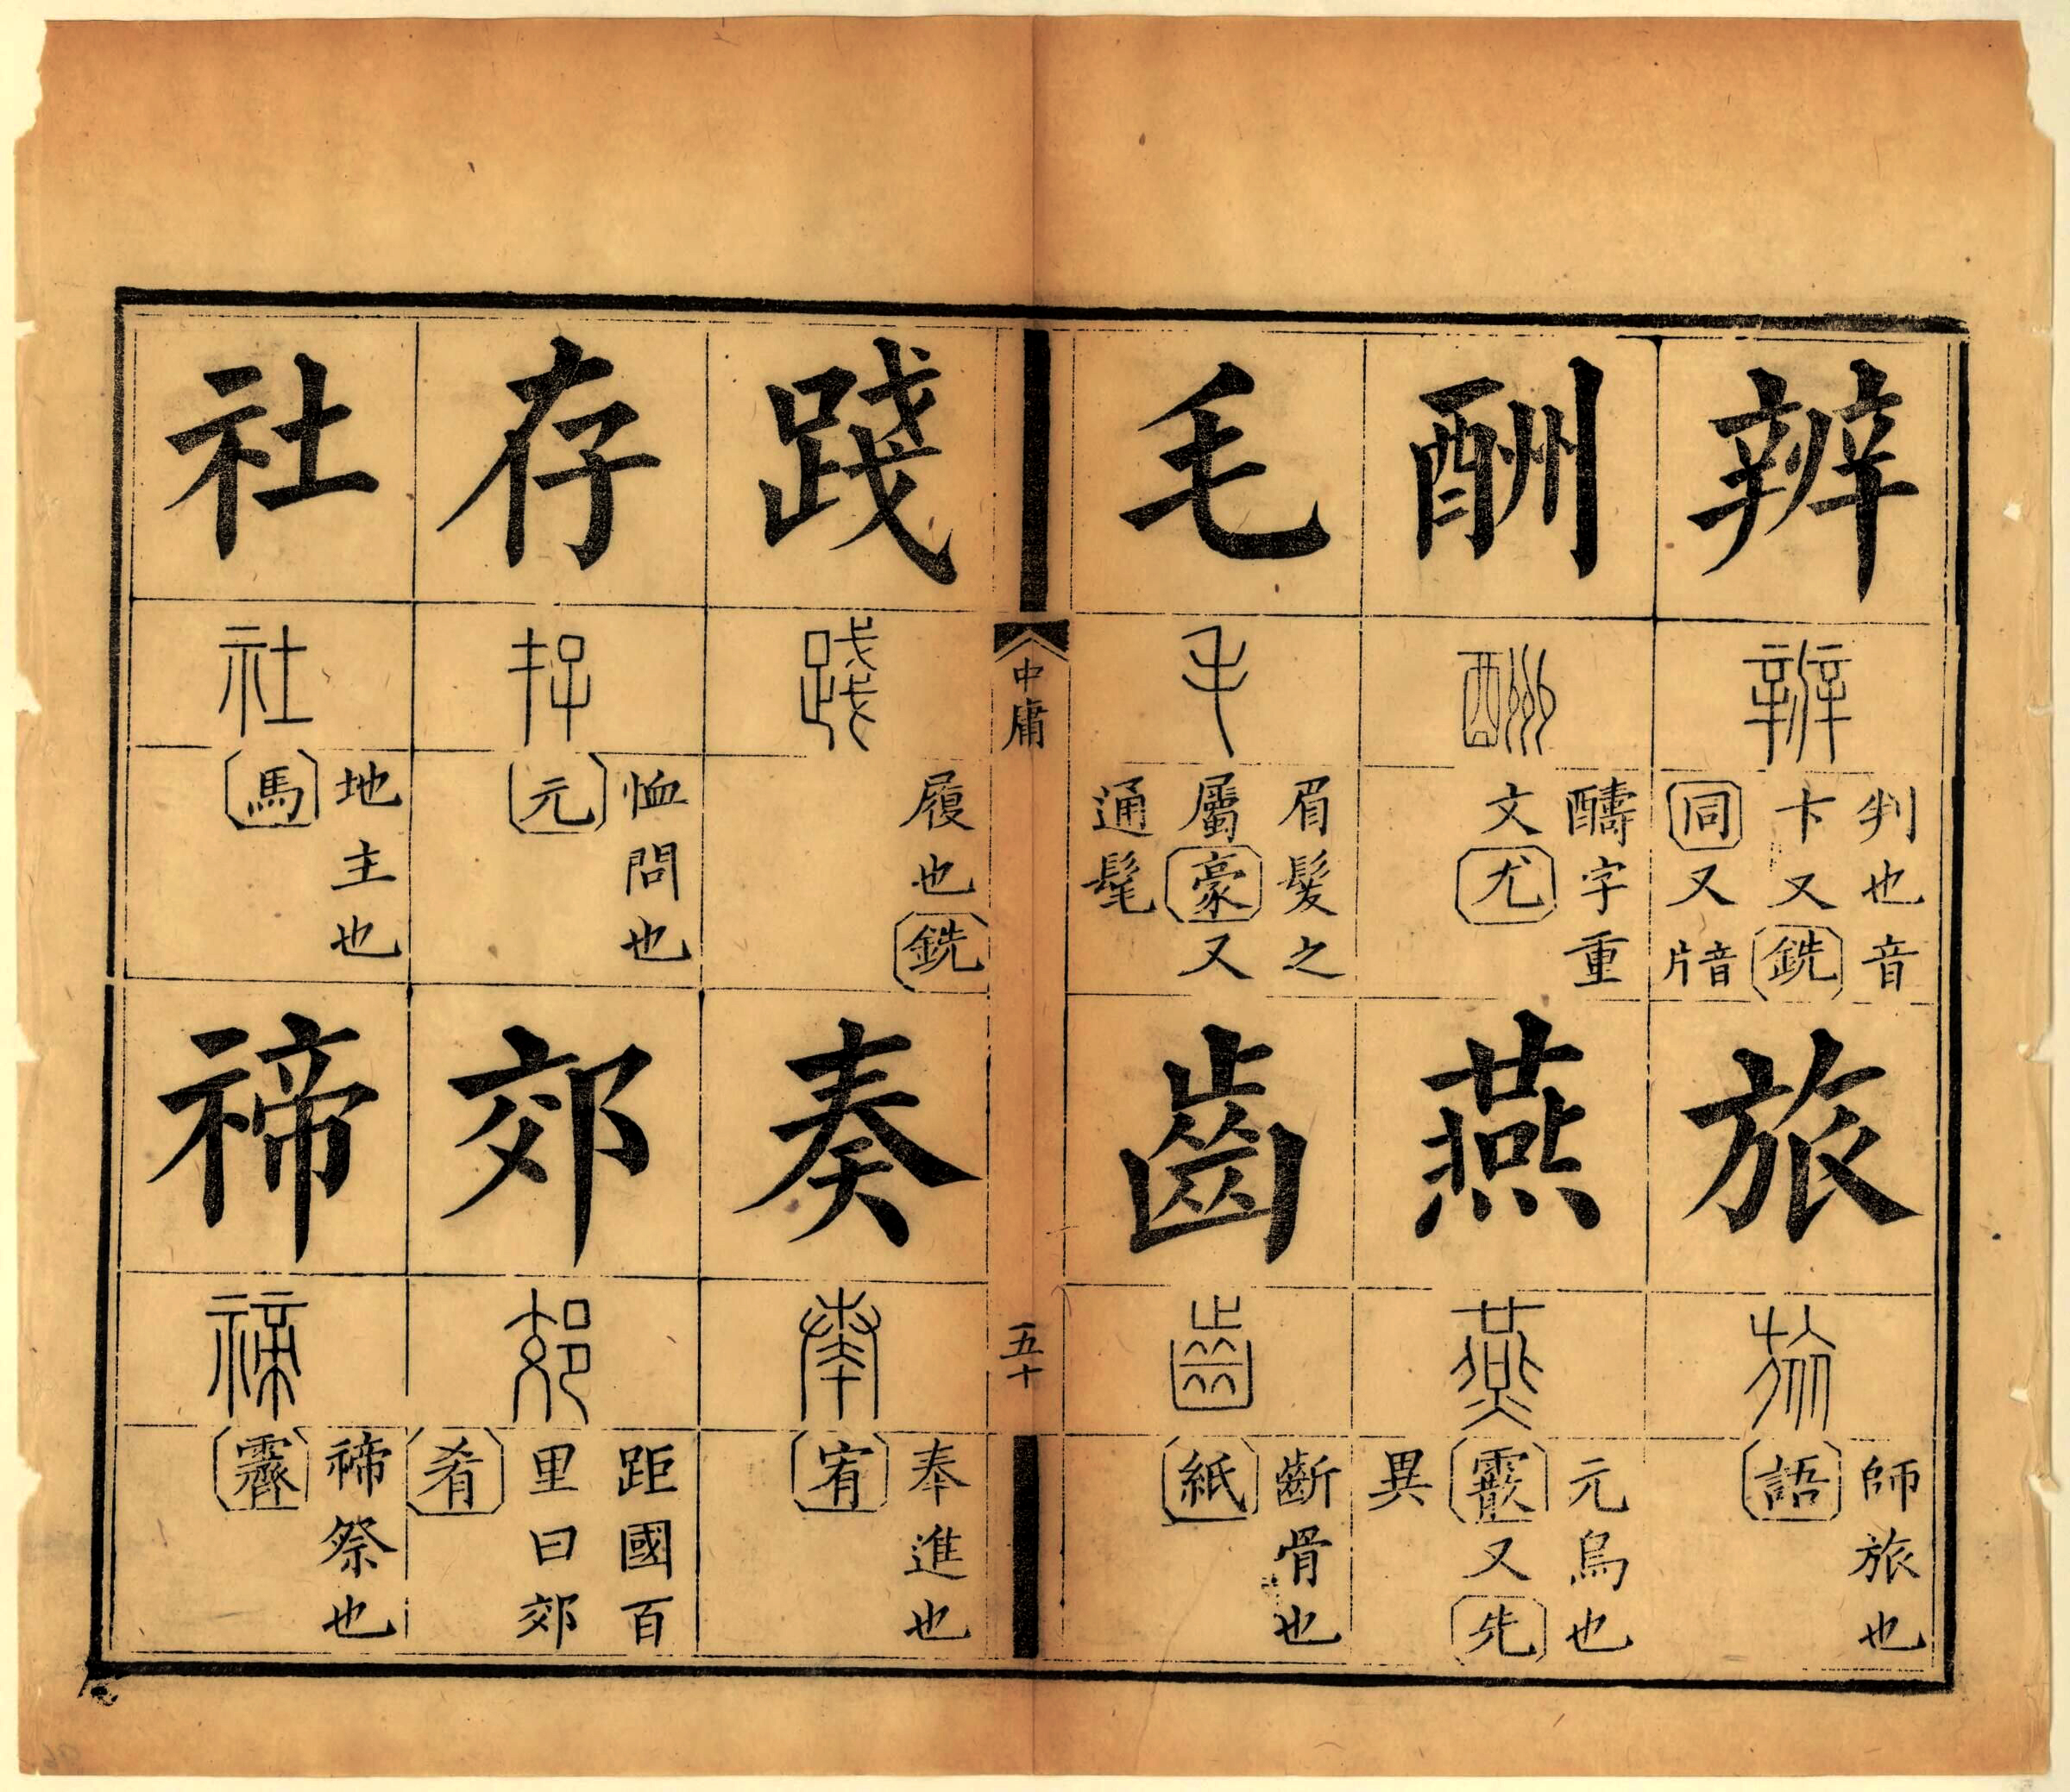 辨
辨
判也音
卞又銑
同又㸁
旅
旅
師旅也
語
酬
酬
醻字重
文尤
燕
燕
元鳥也
霰又先
異
毛
毛
眉髮之
屬豪又
通髦
齒
齒
齗骨也
紙
中庸
五十
踐
踐
履也銑
奏
奏
奉進也
宥
存
存
恤問也
元
郊
郊
距國百
里曰郊
肴
社
社
地主也
馬
禘
禘
禘祭也
霽